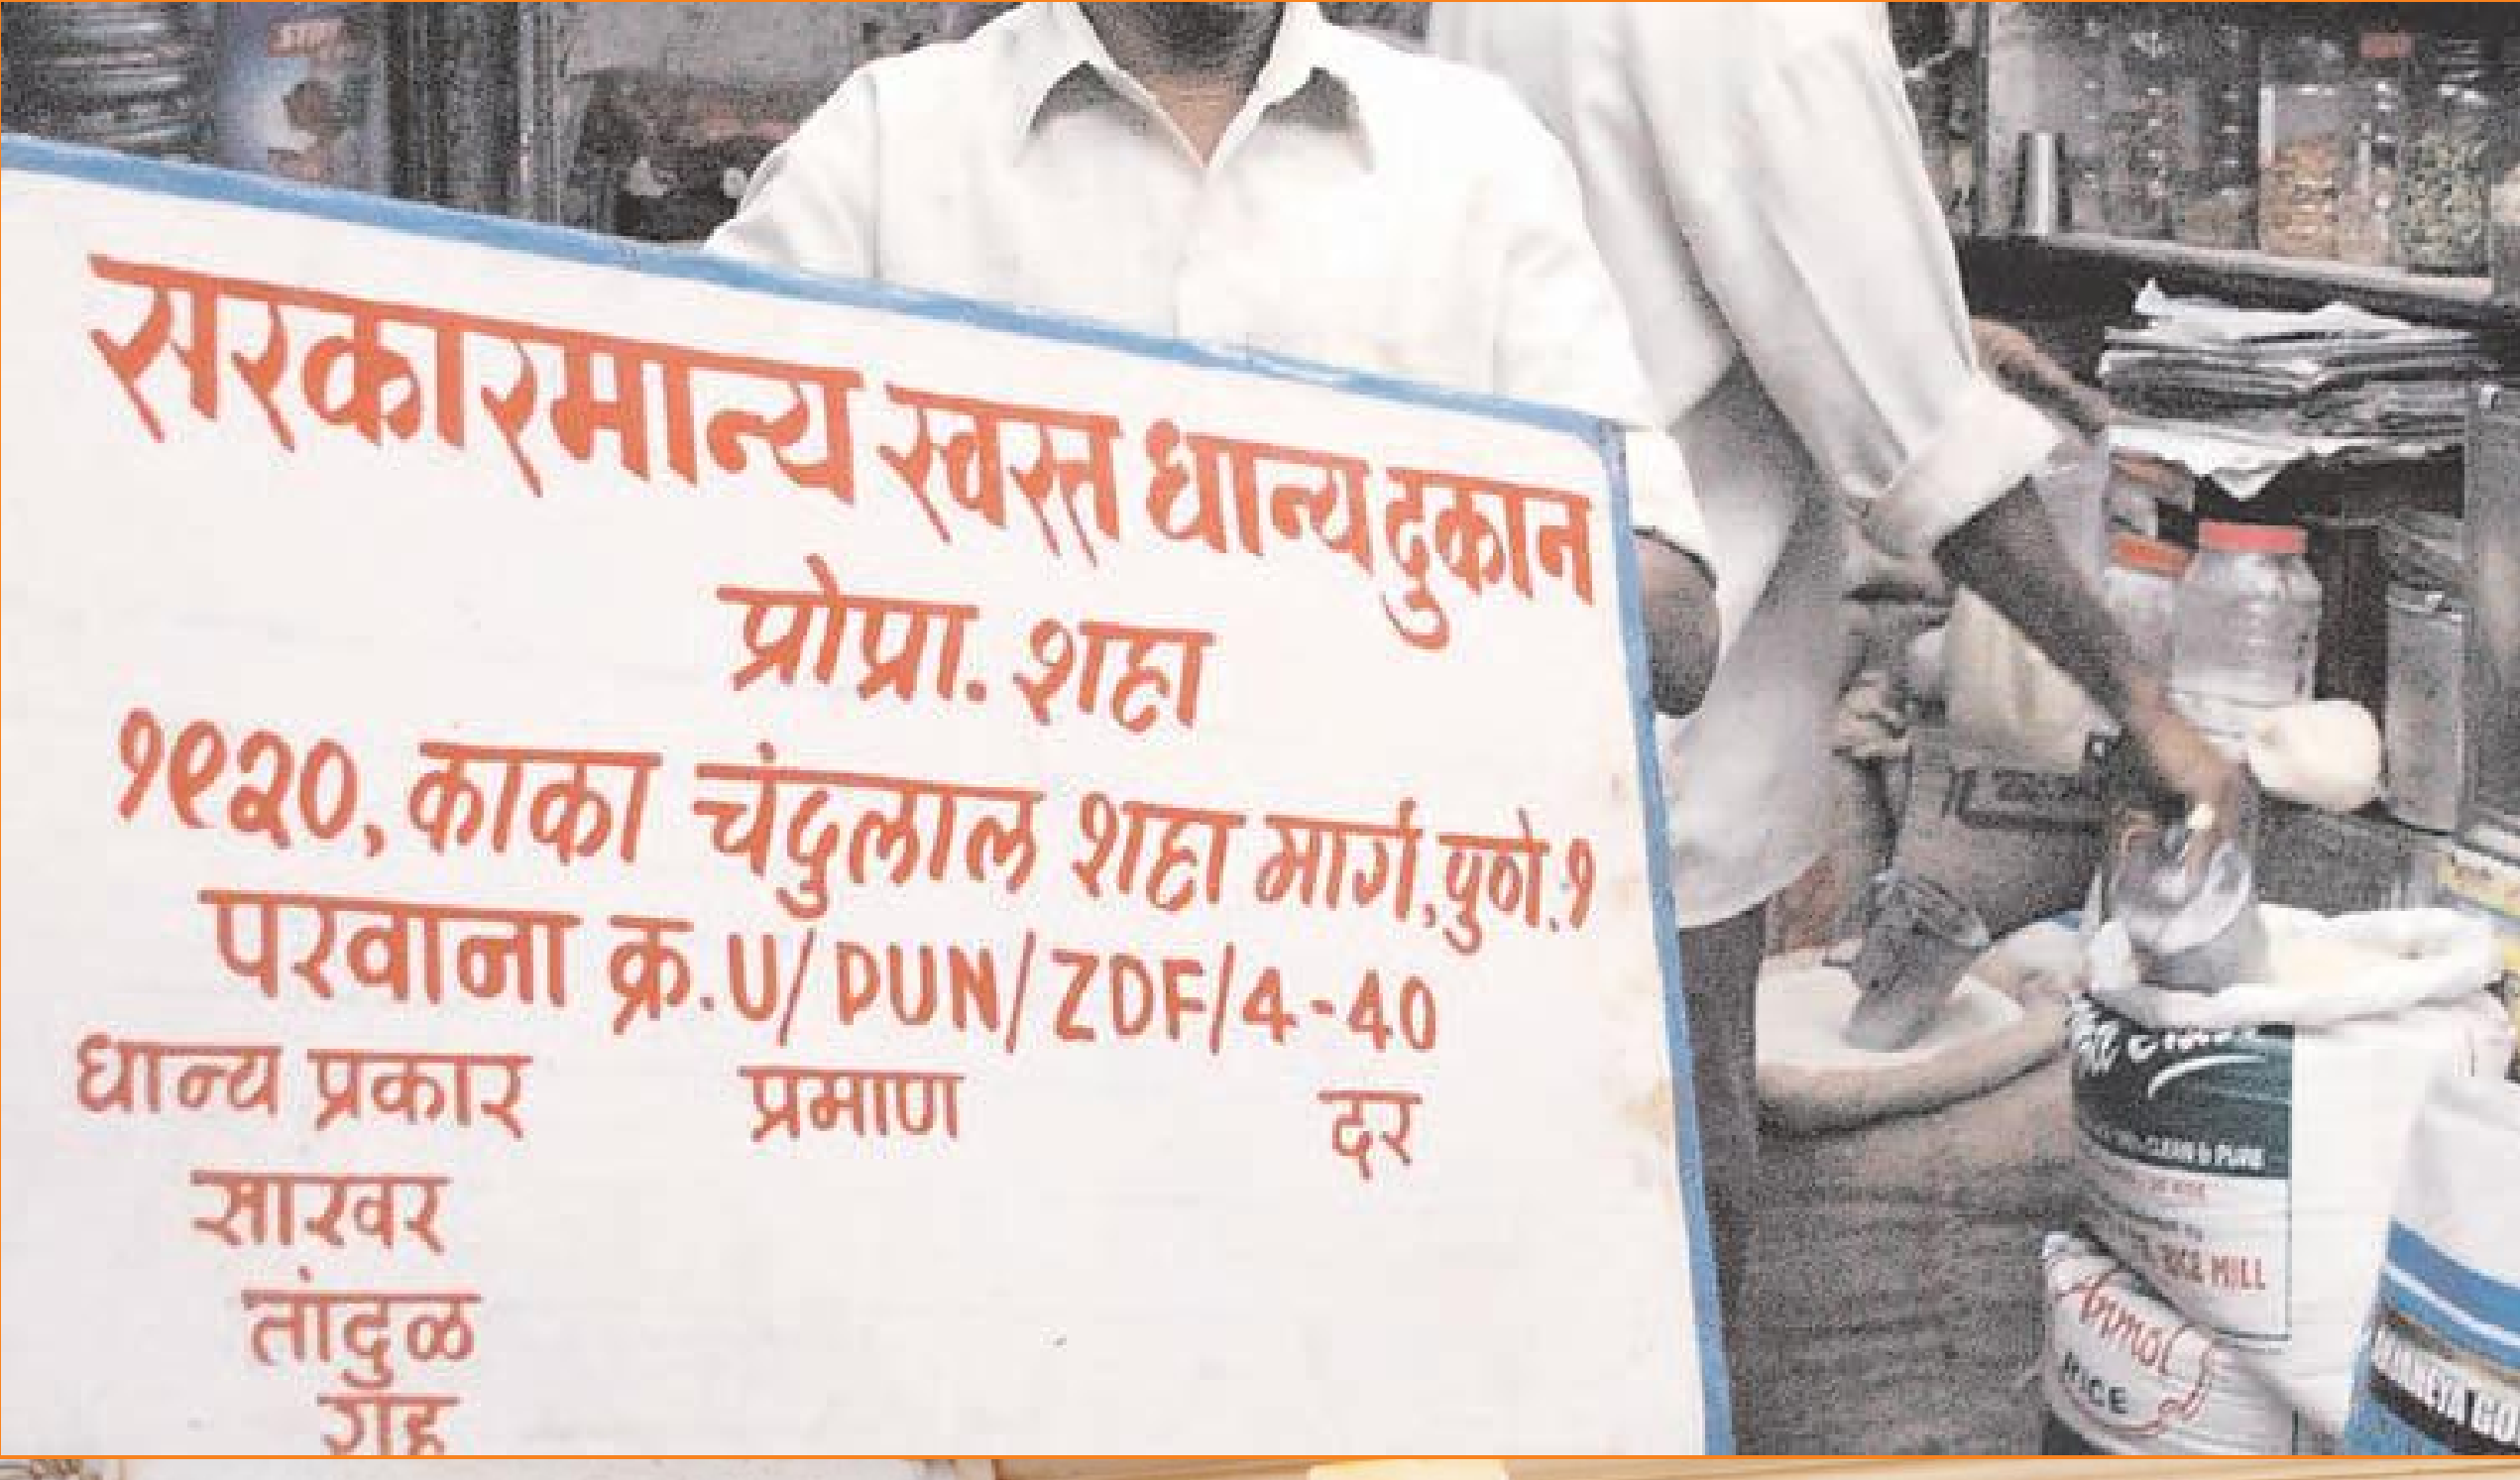 सरकारमान्य स्वस्त धान्य दुकान
प्रोप्रा. शहा
१९२०, काका चंदुलाल शहा मार्ग, पुणे.१
परवाना क्र. U/DUN/ZDF/4-40
धान्य प्रकार प्रमाण दर
साखर
तांदुळ
गहू
CLEAN & PURE
RICE MILL
Anmol
RICE